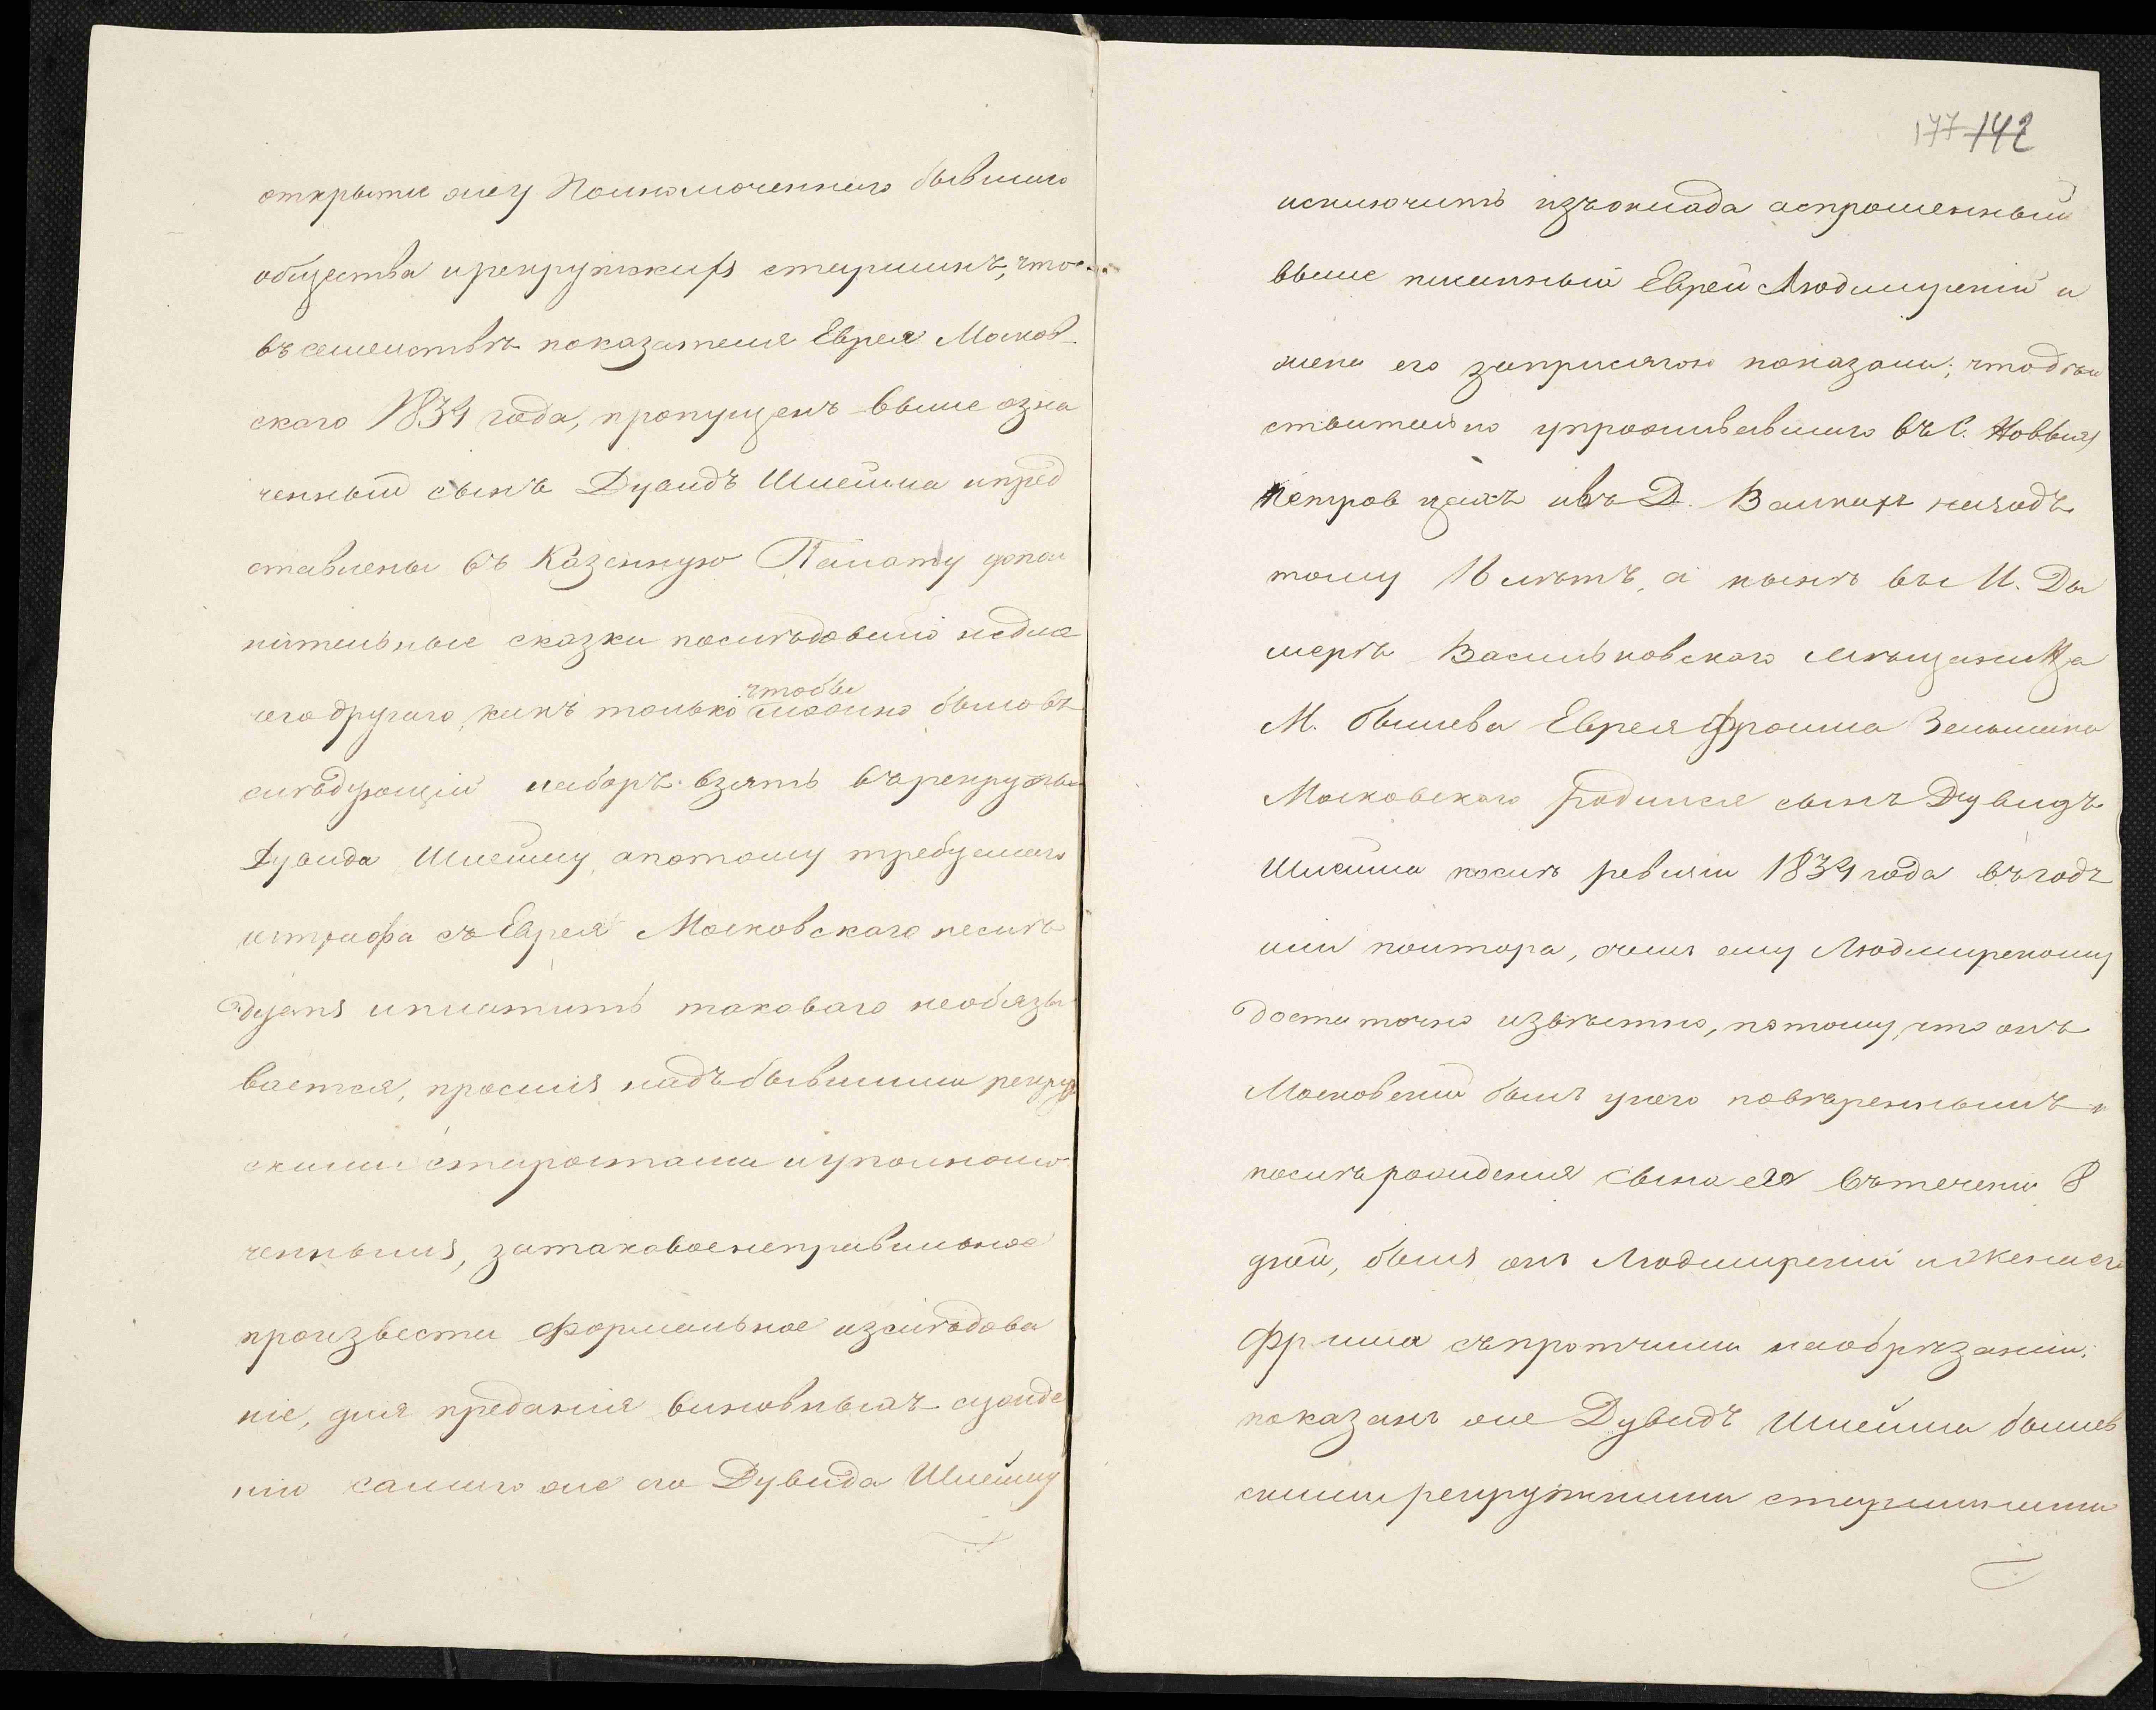 открытіе ему Полномоченнаго бывшаго
общества и рекрутскихъ старшинъ, что
въ семействѣ показателя Еврея Москов-
скаго 1834 года, пропущенъ выше озна
ченный сынъ Дувидъ Шлейма и пред
ставлены въ Казенную Палату допол
нительные сказки послѣдовало не для
чего другаго, какъ только чтобы можно было въ
слѣдующій наборъ взять въ рекруты
Дувида Шлейму, а потому требуемаго
штрафа съ Еврея Московскаго неслѣ
дуетъ и платить таковаго необязы
вается, просилъ надъ бывшими рекрут
скими старостами и уполномо
ченнымъ, за таковое неправильное
произвести формальное изслѣдова
ніе, для преданія виновныхъ сужде
нію самаго же его Дувида Шлейму
177 142
исключить изъ оклада а спрошенный
выше писанный Еврей Людмирскій и
жена его за присягою показали; что дѣй
ствительно у проживавшаго въ С. Новыхъ
Петров цахъ и въ Д. Валкахъ назадъ
тому 16 лѣтъ, а нынѣ въ М. Ды
мерѣ Васильковскаго мѣщанина
М. бышева Еврея Фроима Зельмана
Московскаго родился сынъ Дувидъ
Шлейма послѣ ревизіи 1834 года въ годъ
или полтора, о чемъ ему Людмирскому
достаточно извѣстно, потому, что онъ
Московскій былъ у него повѣреннымъ и
послѣ рожденія сына его въ теченіи 8
дней, былъ онъ Людмирскій и Жена его
Фрима съ протчими на обрѣзаніи:
показанъ же Дувидъ Шлейма бышев
скими рекрутскими старшинами